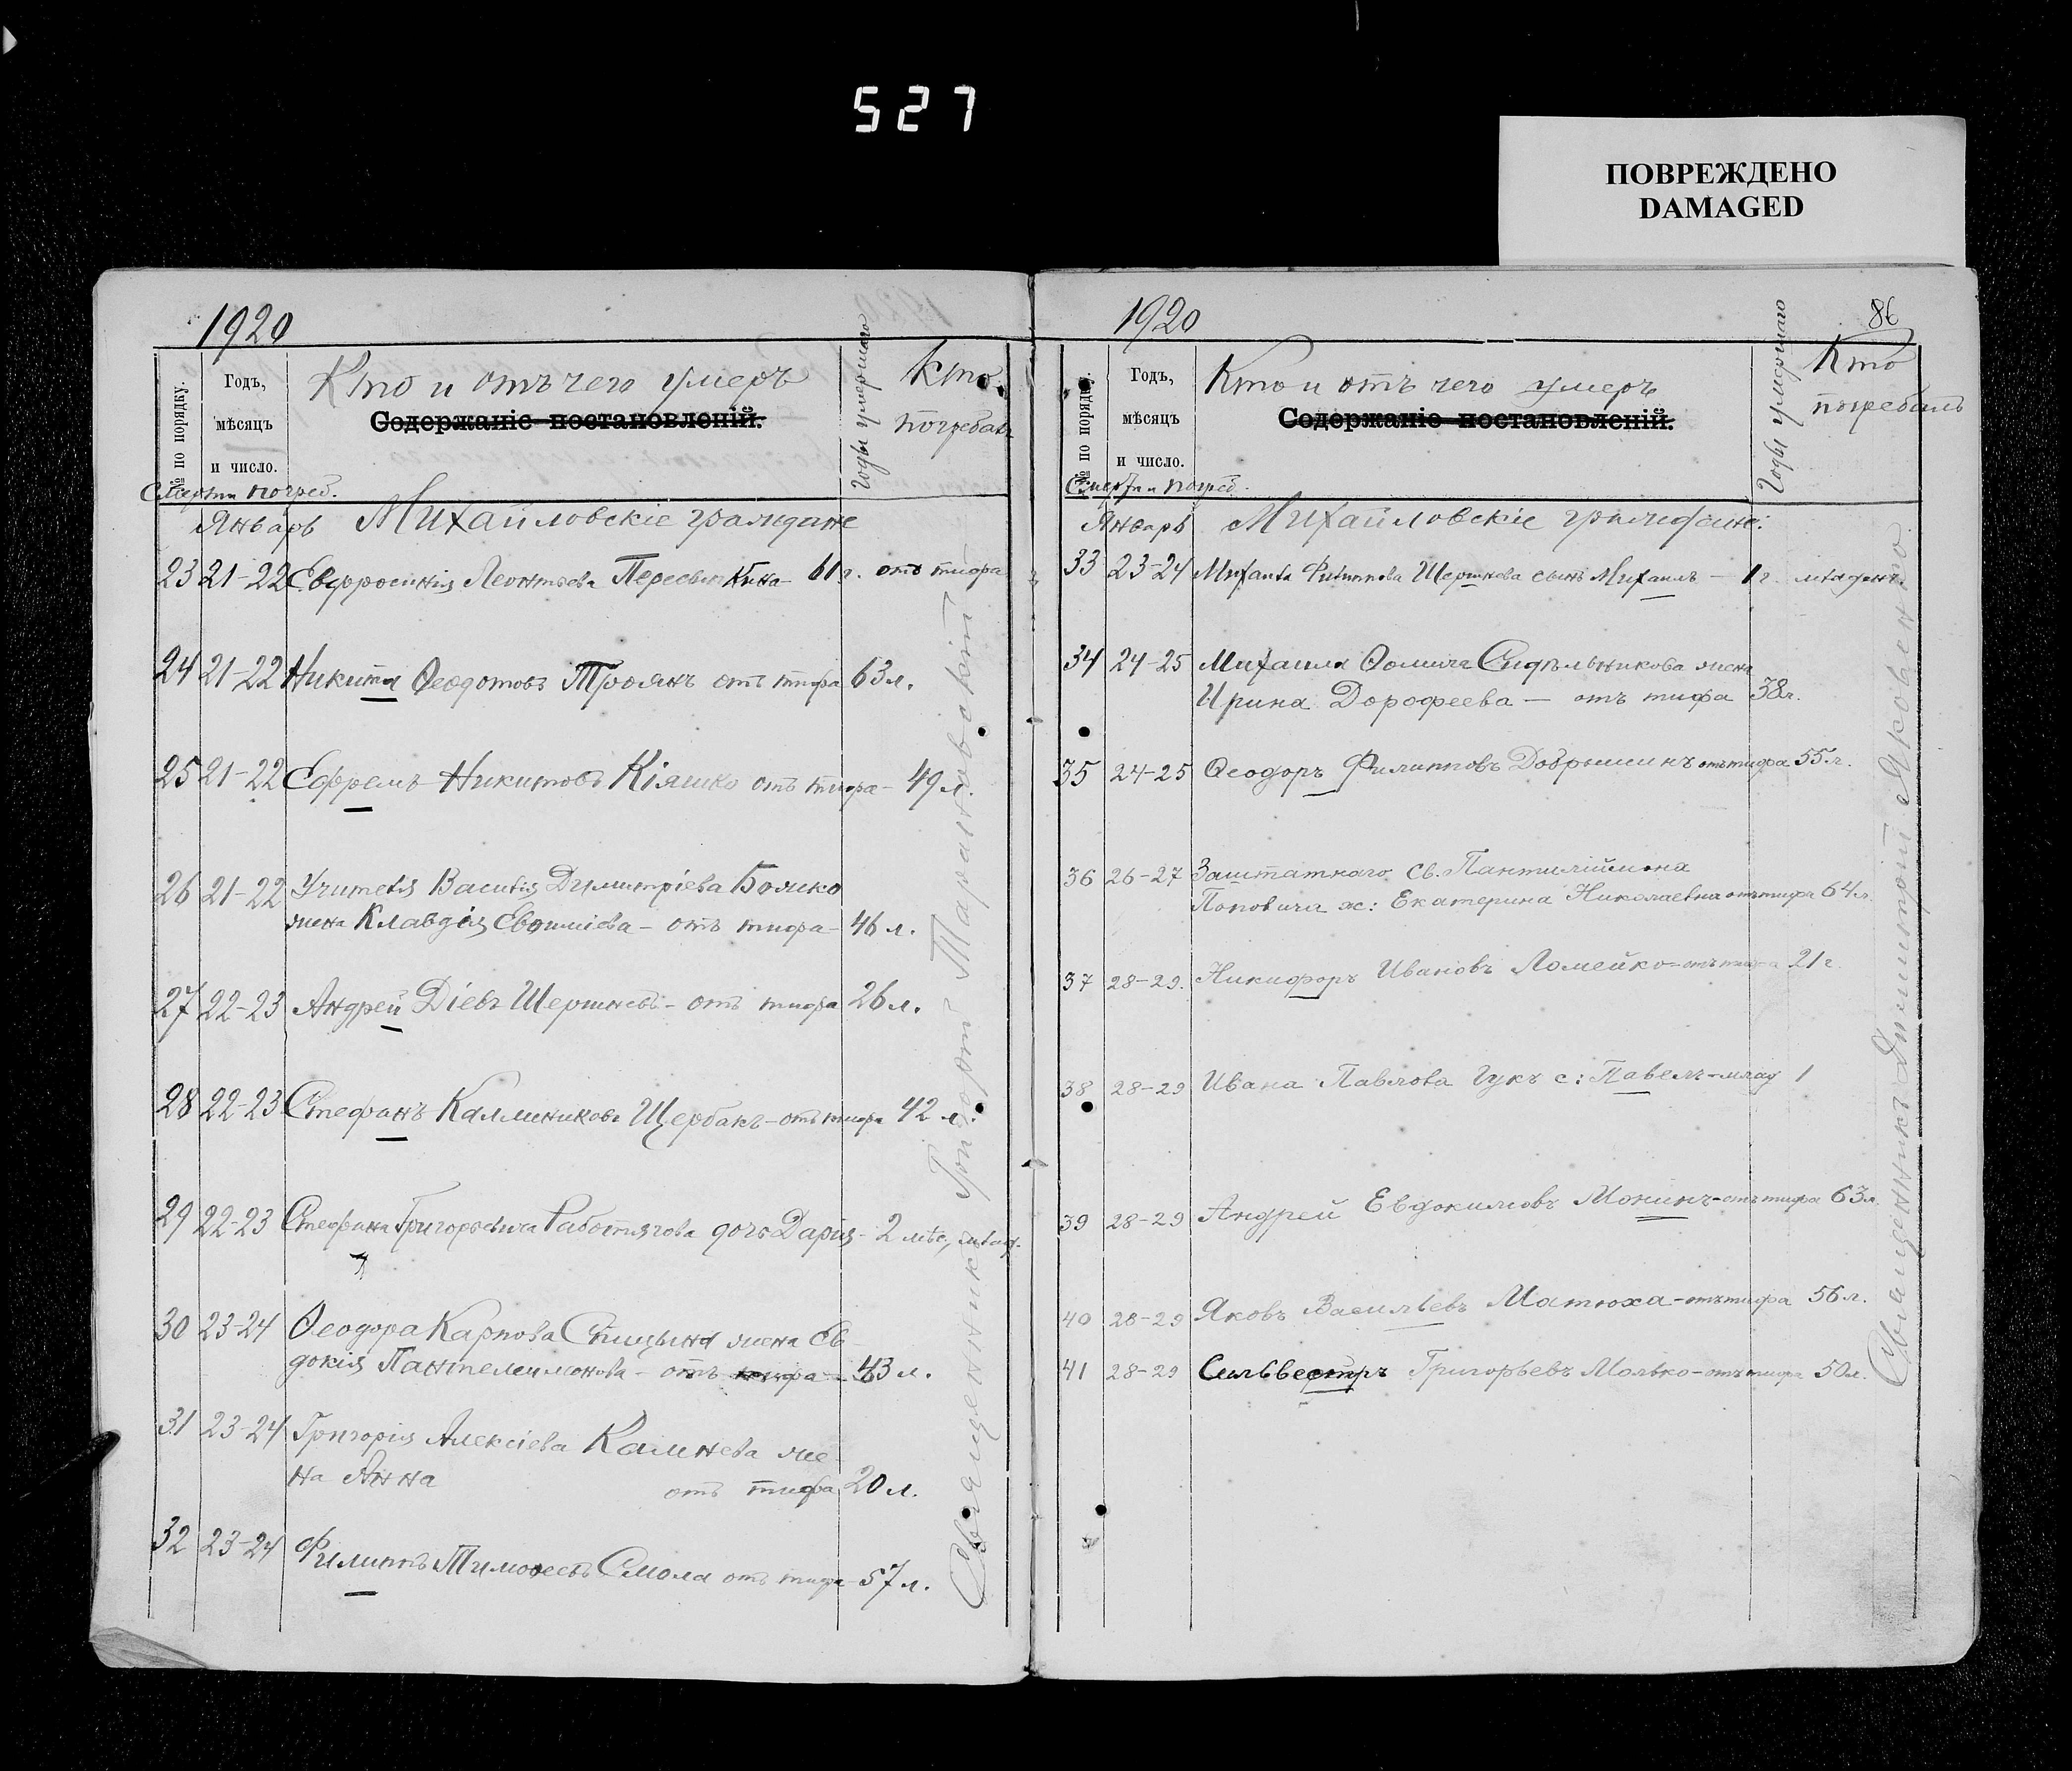 527
ПОВРЕЖДЕНО
DAMAGED
1920
№ по порядку.
Годъ,
мѣсяцъ
и число.
Смерти погреб.
Кто и отъ чего умеръ
Содержаніе постановленій.
Годы умершаго
Кто
погребалъ
Январь Михайловскіе граждане
23 21-22 Евфросинія Леонтьева 61 г. отъ тифа
24 21-22 Никита Ѳеодотовъ Троянъ отъ тифа 63 л.
25 21-22 Ефремъ Никитовъ Кіяшко отъ тифа - 49 л.
26 21-22 Учителя Василія Димитріева Бояшко
жена Клавдія Евѳиміева - отъ тифа - 46 л.
27 22-23 Андрей Діевъ Шершневъ - отъ тифа 26 л.
28 22-23 Стефанъ Каллиниковъ Щербакъ - отъ тифа 42 л.
29 22-23 Стефана Григорьевича Работягова дочь Дарія - 2 млад.
30 23-24 Ѳеодора Карпова Спицына жена Ев
докія Пантелеимонова - отъ тифа - 43 л.
31 23-24 Григорія Алексіева Камнева же
на Анна отъ тифа 20 л.
32 23-24 Филиппъ Тимоѳеевъ Смола отъ тифа 57 л.
Священникъ Григорій
1920
86
№ по порядку.
Годъ,
мѣсяцъ
и число.
Смерти и погреб.
Кто и отъ чего умеръ
Содержаніе постановленій.
Годы умершаго
Кто
погребалъ
Январь Михайловскіе граждане:
33 23-24 Михаила Филиппова Шершнева сынъ Михаилъ - 1 г. младенч.
34 24-25 Михаила Ѳомича Сидѣльникова жена
Ирина Дорофеева — отъ тифа 38 л.
35 24-25 Ѳеодоръ Филипповъ Добрышинъ отъ тифа 55 л.
36 26-27 Заштатнаго св. Пантилііимона
Поповича ж: Екатерина Николаевна отъ тифа 64 л.
37 28-29. Никифоръ Ивановъ Ломейко - отъ тифа 21 г.
38 28-29 Ивана Павлова Гукъ с: Павелъ - млад 1
39 28-29 Андрей Евдокимовъ Монинъ - отъ тифа 63 л.
40 28-29 Яковъ Васильевъ Матюха - отъ тифа 56 л.
41 28-29 Сильвестръ Григорьевъ Молько - отъ тифа 50 л.
Священникъ Димитрій Яковенко